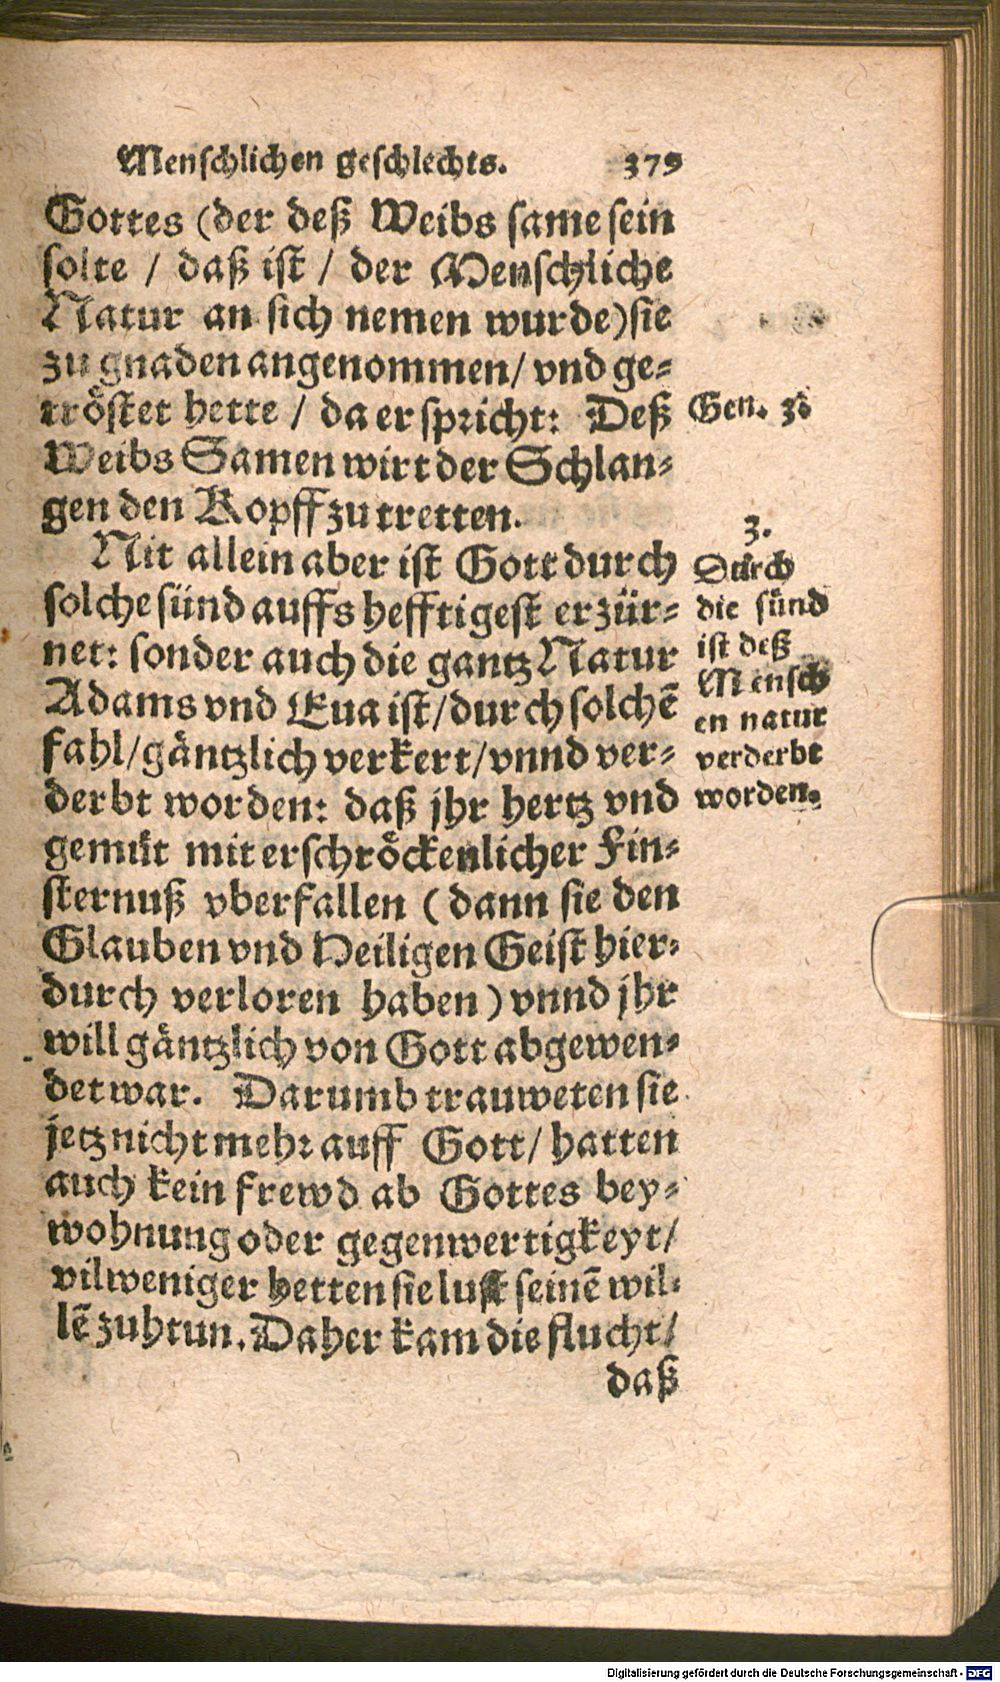 Menschlichen geschlechts. 379
Gottes (der deß Weibs same sein
solte / daß ist / der Menschliche
Natur an sich nemen wurde) sie
zu gnaden angenommen / vnd ge-
tröstet hette / da er spricht: Deß
Weibs Samen wirt der Schlan-
gen den Kopff zu tretten.
Gen. 3.
Nit allein aber ist Gott durch
solche sünd auffs hefftigest erzür-
net: sonder auch die gantz Natur
Adams vnd Eua ist / durch solchē
fahl / gäntzlich verkert / vnnd ver-
derbt worden: daß jhr hertz vnd
gemüt mit erschröckenlicher Fin-
sternuß vberfallen (dann sie den
Glauben vnd Heiligen Geist hier-
durch verloren haben) vnnd jhr
will gäntzlich von Gott abgewen-
det war. Darumb trauweten sie
jetz nicht mehr auff Gott / hatten
auch kein frewd ab Gottes bey-
wohnung oder gegenwertigkeyt /
vil weniger hetten sie lust seinē wil-
lē zuhtun. Daher kam die flucht /
daß
3.
Durch
die sünd
ist deß
Mensch
en natur
verderbt
worden.
Digitalisierung gefördert durch die Deutsche Forschungsgemeinschaft - DFG